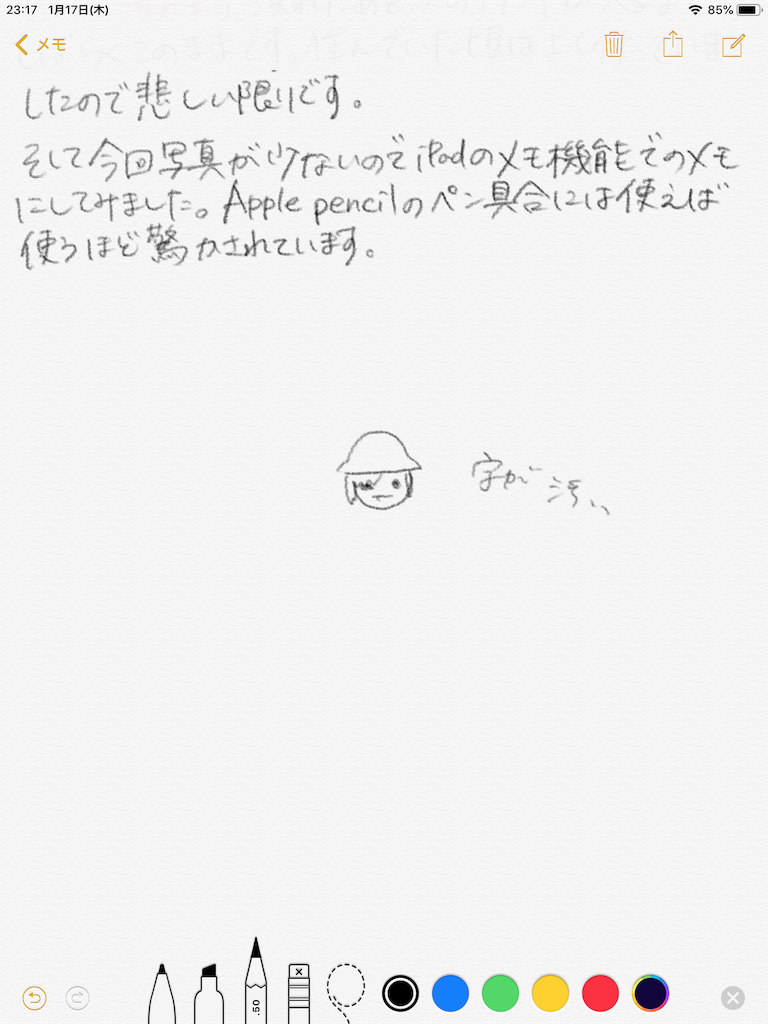 23:17 1月17日(木) 85%
メモ
したので悲しい限りです。
そして今回写真が少ないのでiPadのメモ機能でのメモ
にしてみました。Apple pencilのペン具合には使えば
使うほど驚かされています。
字が汚い
.50